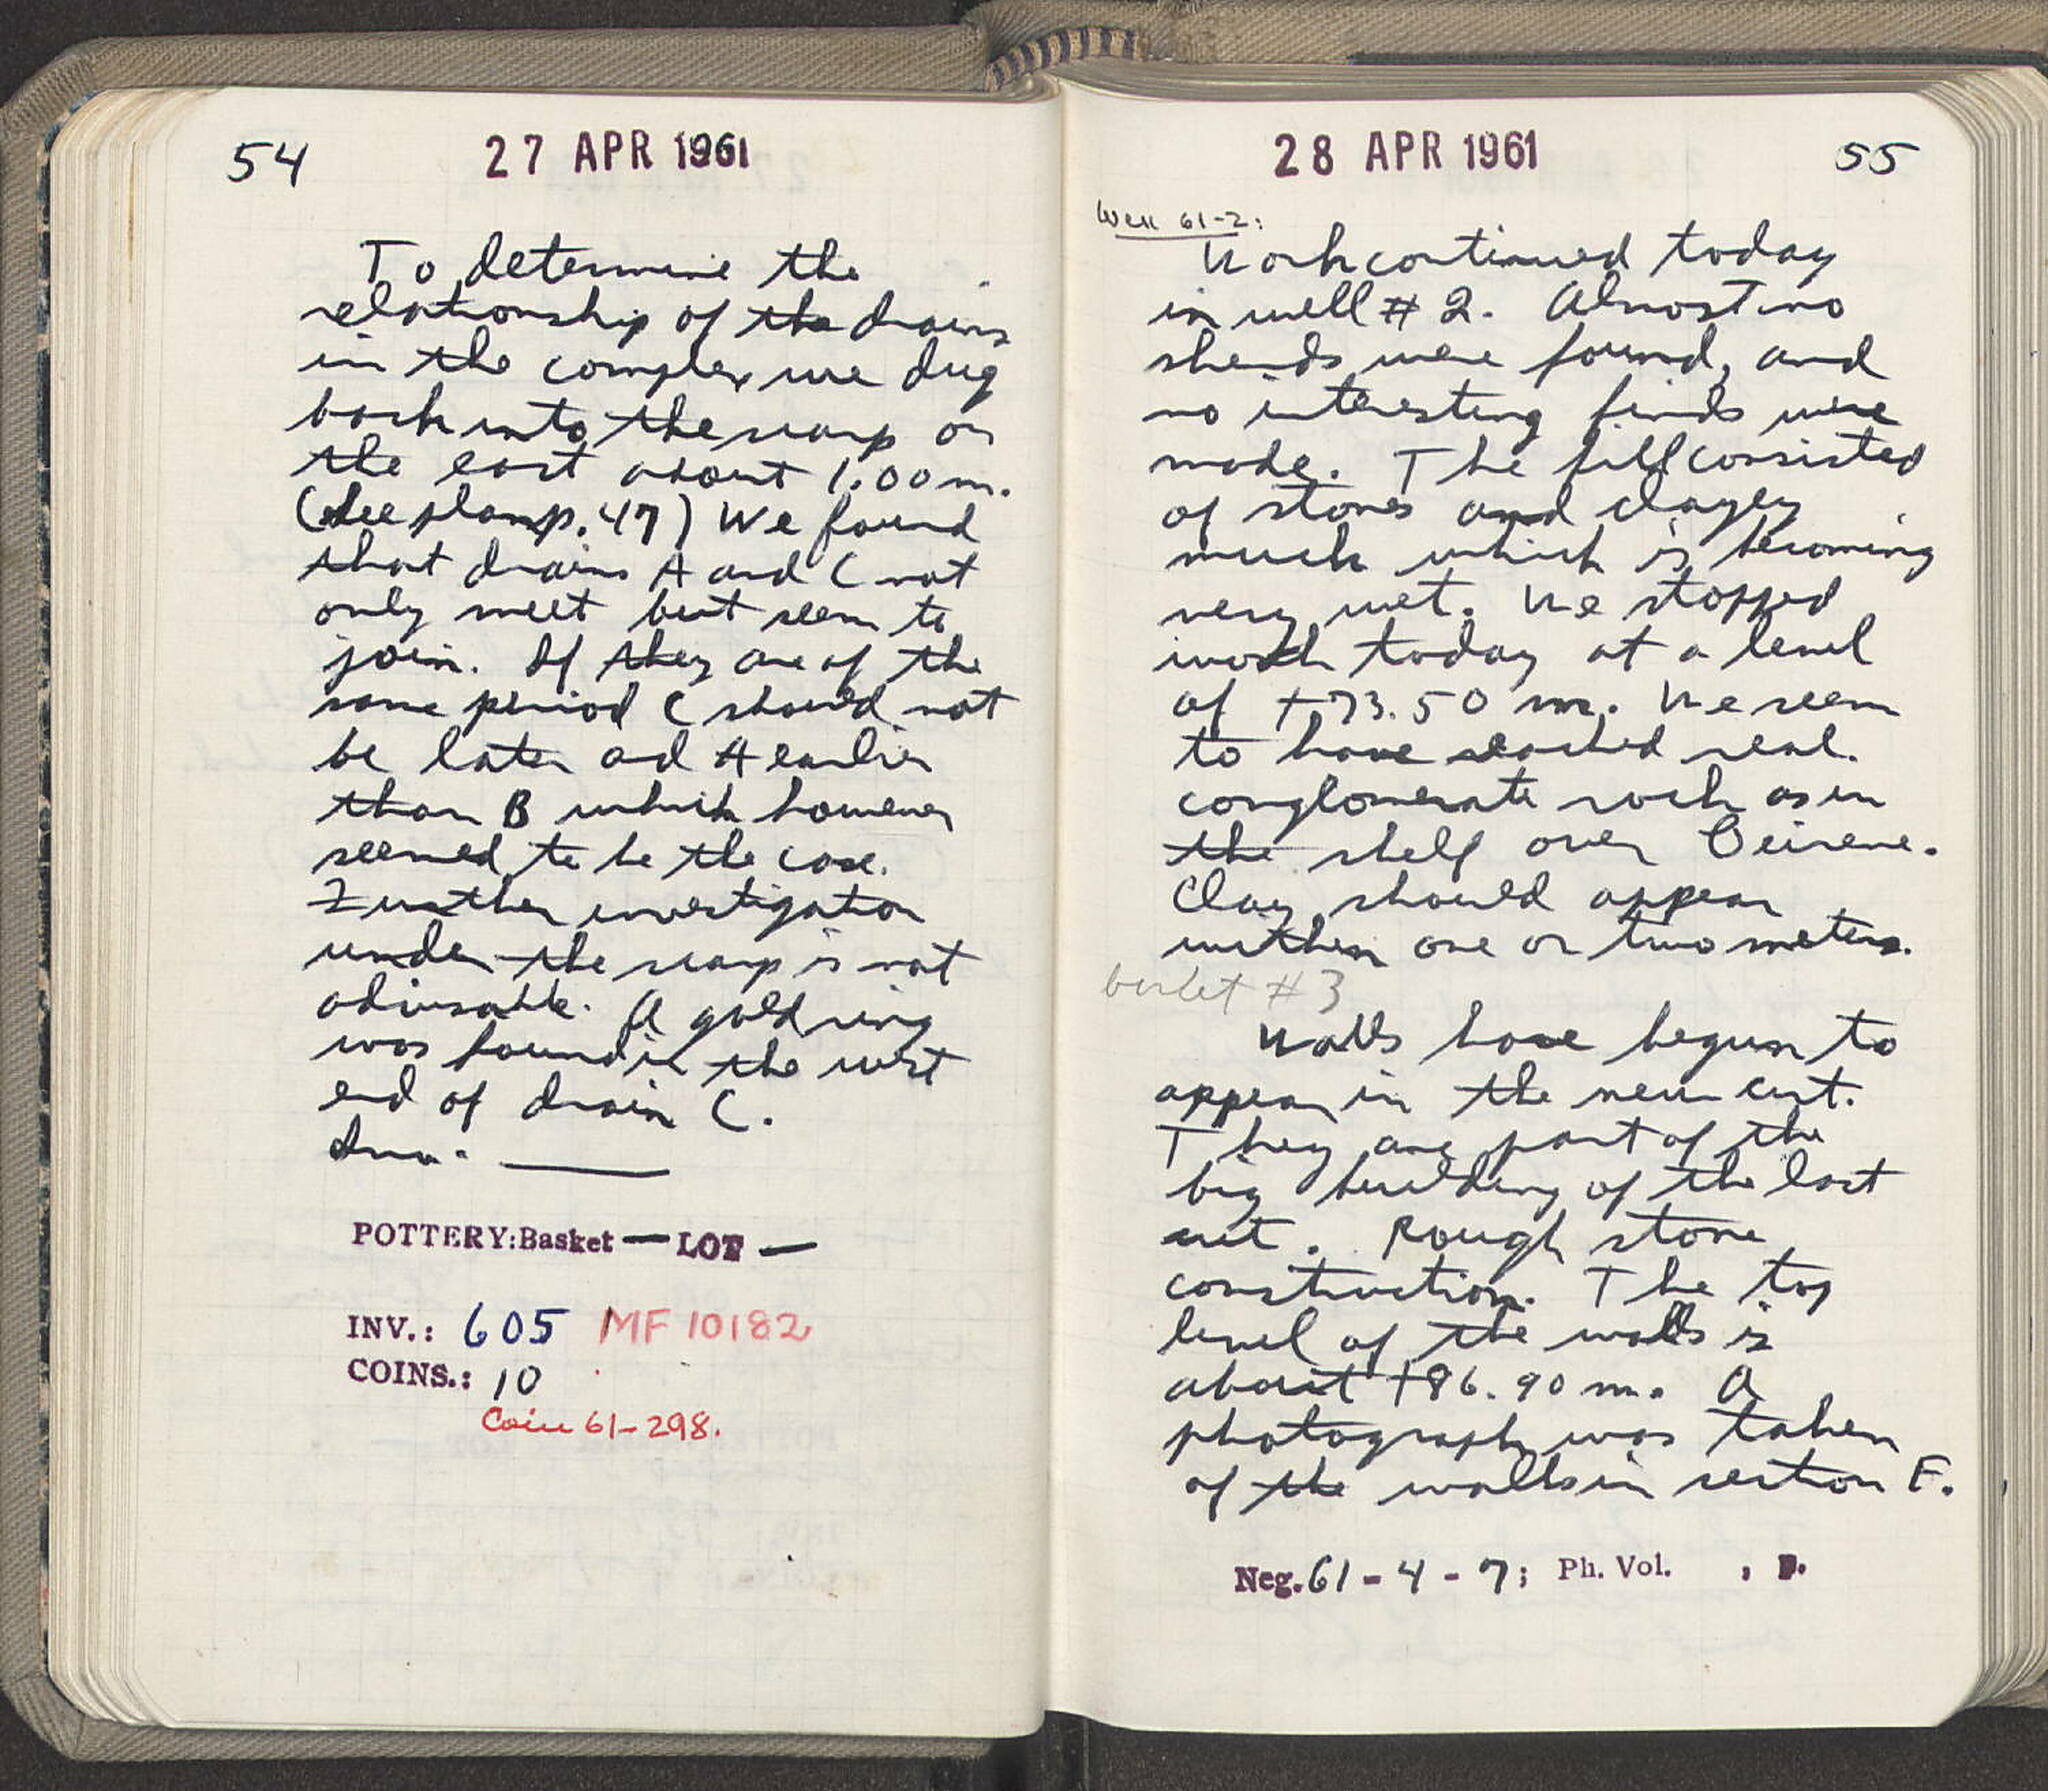 54
27 APR 1961
To determine the
relationship of the drains
in the complex we dug
back into the scarp on
the east about 1.00 m.
(See plan p. 47) We found
that drains A and C not
only meet but seem to
join. If they are of the
same period C should not
be later and A earlier
than B which however
seemed to be the case.
Further investigation
under the scarp is not
advisable. A gold ring
was found in the west
end of drain C.
POTTERY: Basket — LOT —
INV.: 605 MF 10182
COINS.: 10
Coin 61-298.
28 APR 1961
55
Well 61-2:
Work continued today
in well # 2. Almost no
sherds were found, and
no interesting finds were
made. The fill consisted
of stones and clayey
muck which is becoming
very wet. We stopped
work today at a level
of +73.50 m. We seem
to have reached real
conglomerate rock as in
the shelf over Peirene.
Clay should appear
within one or two meters.
basket # 3
Walls have begun to
appear in the new cut.
They are part of the
big building of the last
cut. Rough stone
construction. The top
level of the walls is
about +86.90 m. A
photograph was taken
of the walls in section F.
Neg. 61 - 4 - 7; Ph. Vol. , p.